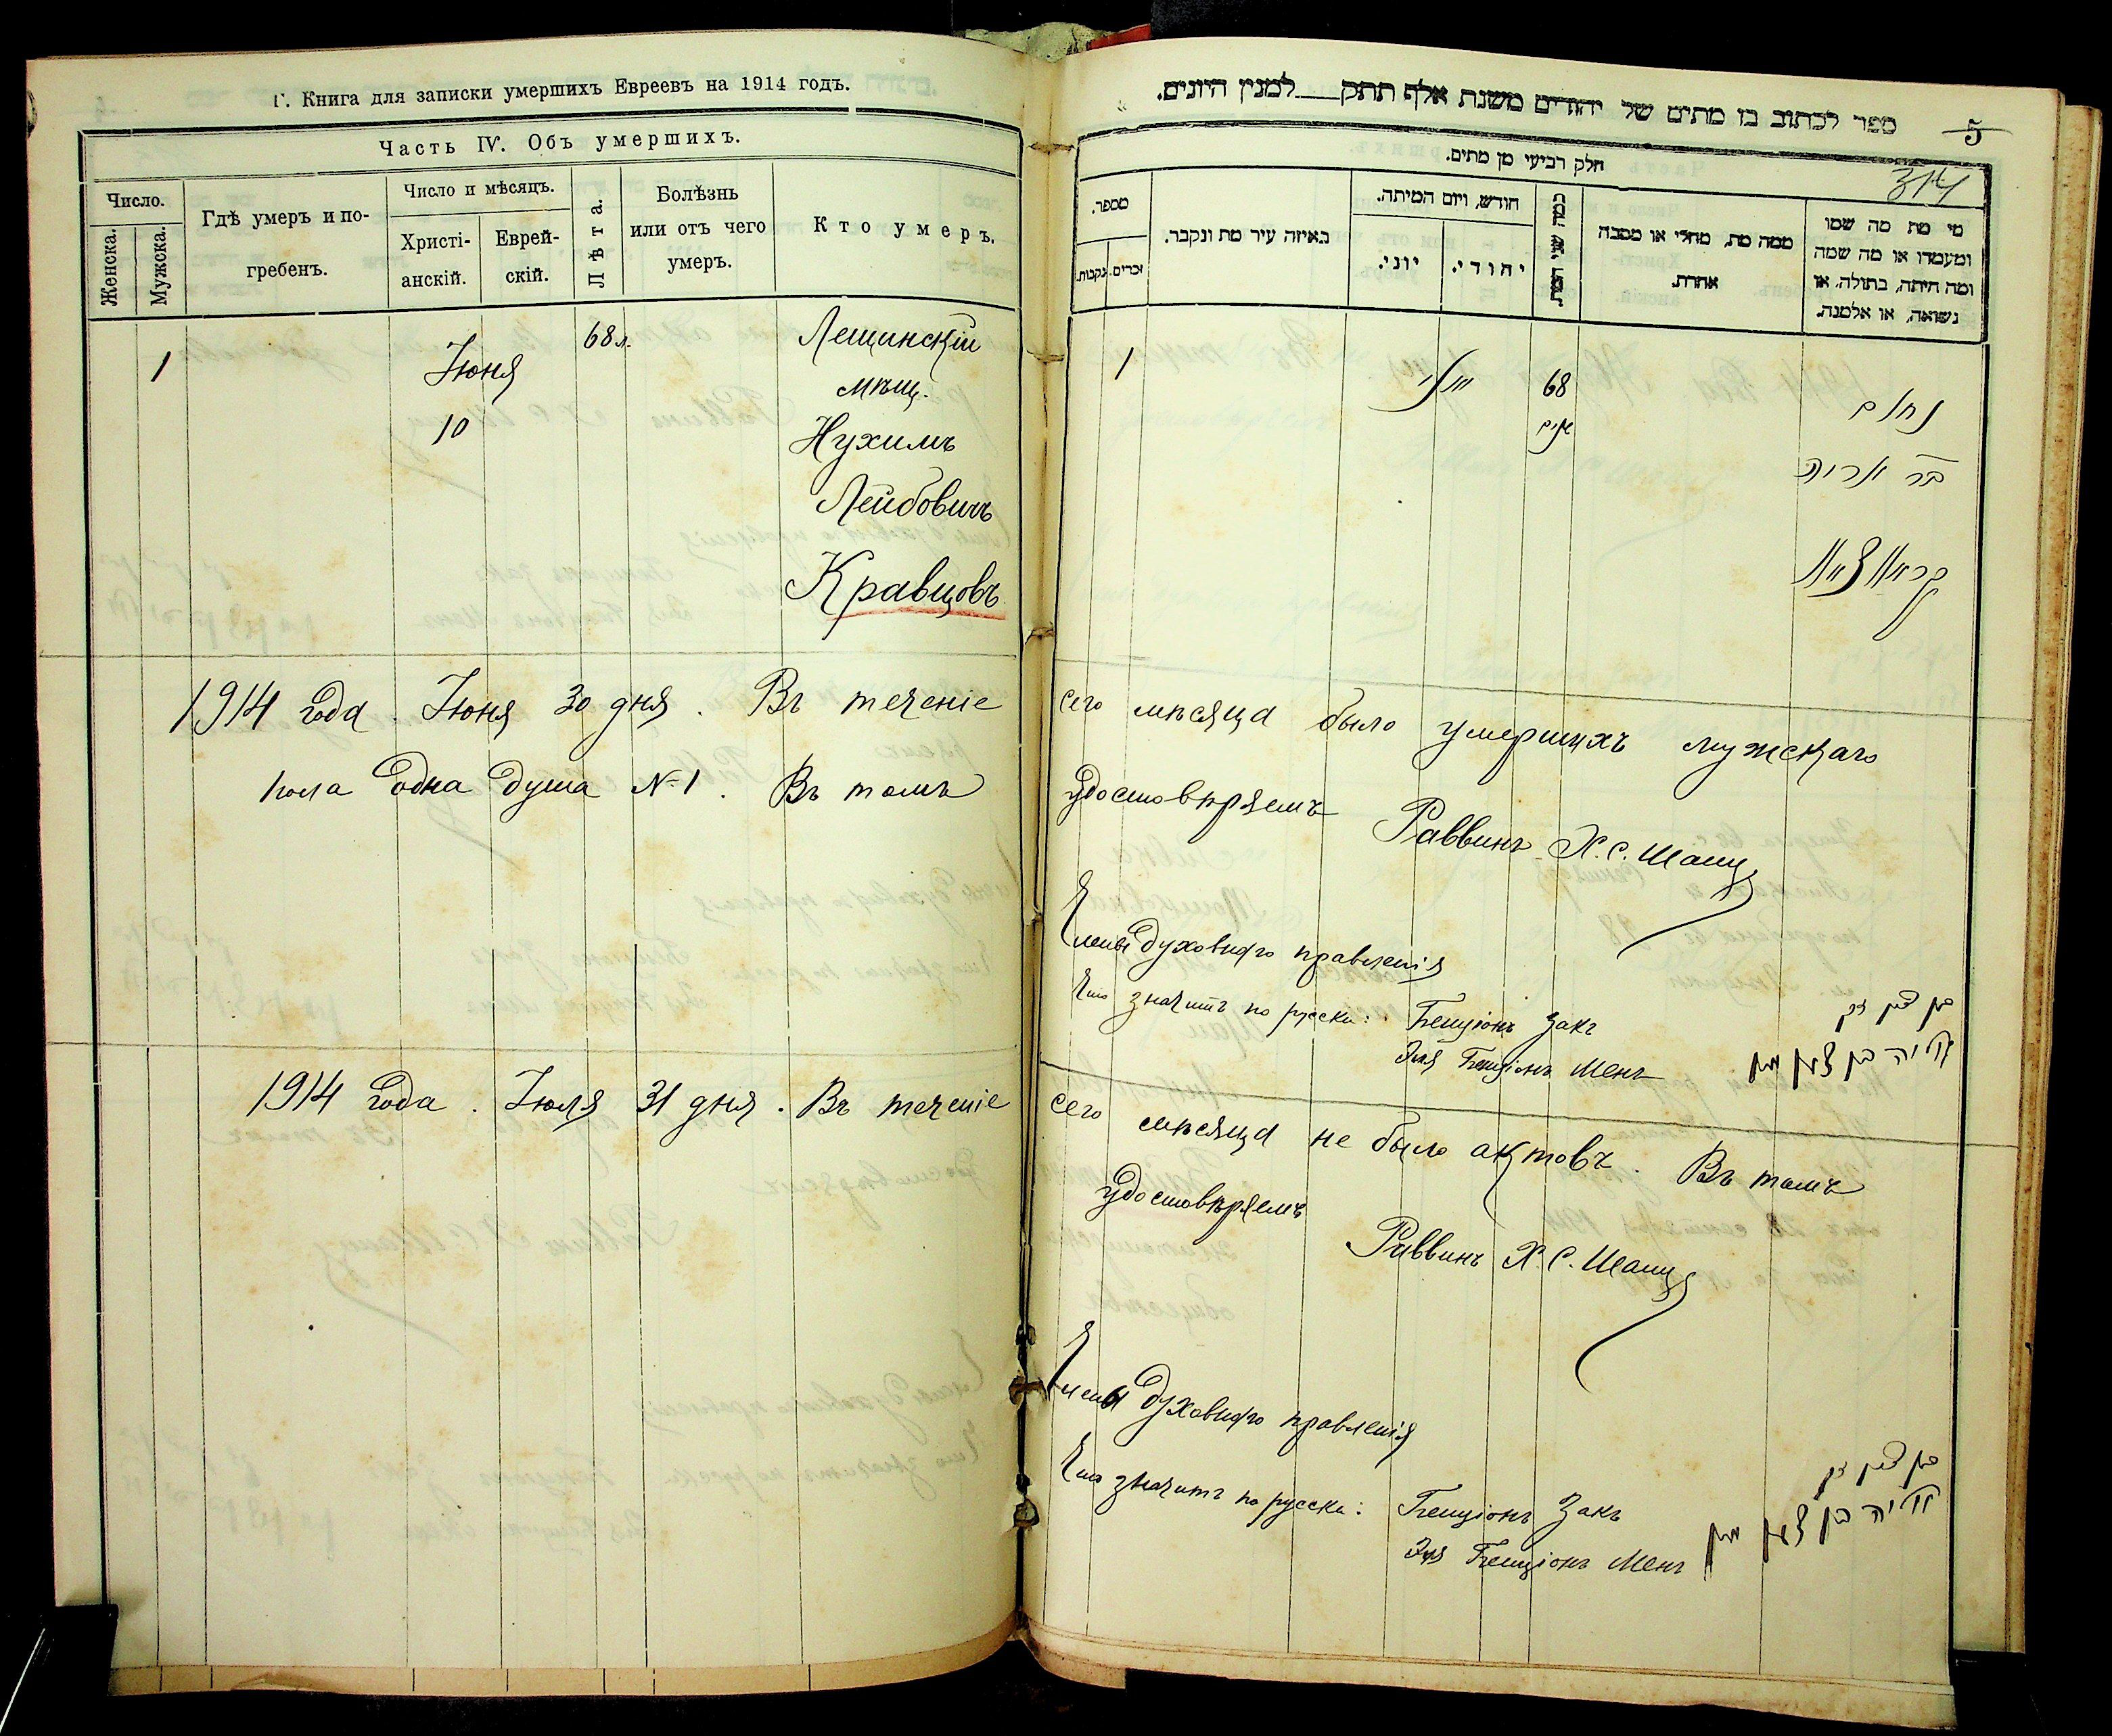 Г. Книга для записки умершихъ Евреевъ на 1914 годъ.
Часть IV. Объ умершихъ.
Число.
Женска.
Мужска.
Гдѣ умеръ и по-
гребенъ.
Число и мѣсяцъ.
Христі-
анскій.
Еврей-
скій.
Лѣта.
Болѣзнь
или отъ чего
умеръ.
Кто умеръ.
1
Іюня
10
68 л.
Лещинскій
мѣщ.
Нухимъ
Лейбовичъ
Кравцовъ
1914 года. Іюня 30 дня. Въ теченіе
пола одна душа №1. Въ томъ
1914 года. Іюля 31 дня. Въ теченіе
ספר לכתוב בו מתים של יהודים משנת אלף תתק למנין היונים.
5
חלק רביעי מן מתים.
314
מספר.
נקבות.
זכרים.
באיזה עיר מת ונקבר.
חודש, ויום המיתה.
יוני.
יהודי.
כמה שני המת.
ממה מת, מחלי או מסבה
אחרת.
מי מת מה שמו
ומעמדו או מה שמה
ומה היתה, בתולה, או
נשואה, או אלמנה.
1
68
שנים
נחום
בר אריה
сего мѣсяца было умершихъ мужскаго
удостовѣряемъ Раввинъ Х. С. Шапиц
Члены духовнаго правленія
Что значитъ по русски: Бенціонъ Закъ
בן ציון זק
Эля Бенціонъ Менъ
сего мѣсяца не было актовъ. Въ томъ
удостовѣряемъ
Раввинъ Х. С. Шапиц
Члены духовнаго правленія
Что значитъ по русски: Бенціонъ Закъ
בן ציון זק
Эля Бенціонъ Менъ